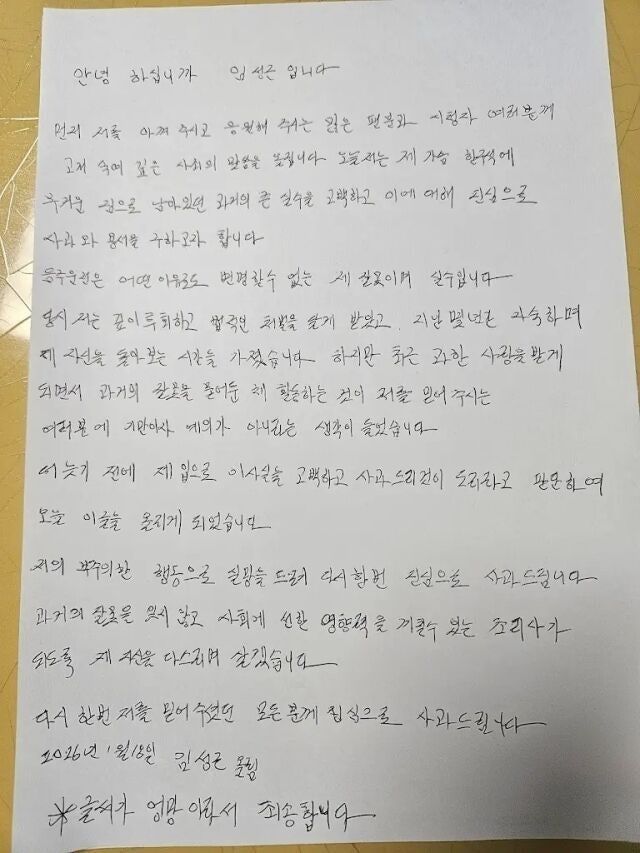 안녕 하십니까 임성근 입니다
먼저 저를 아껴 주시고 응원해 주시는 많은 팬분과 시청자 여러분께
고개 숙여 깊은 사죄의 말씀을 올립니다 오늘 저는 제 가슴 한구석에
무거운 짐으로 남아있던 과거의 큰 실수를 고백하고 이에 대해 진심으로
사과와 용서를 구하고자 합니다
음주운전은 어떤 이유로도 변명할수 없는 제 잘못이며 실수입니다
당시 저는 깊이 후회하고 법적인 처벌을 달게 받았고, 지난 몇년간 자숙하며
제 자신을 돌아보는 시간을 가졌습니다 하지만 최근 과한 사랑을 받게
되면서 과거의 잘못을 묻어둔 채 활동하는 것이 저를 믿어 주시는
여러분에 기만이자 예의가 아니라는 생각이 들었습니다
더 늦기 전에 제 입으로 이사실을 고백하고 사과드리것이 도리라고 판단하여
오늘 이글을 올리게 되었습니다
저의 부주의한 행동으로 실망을 드려 다시한번 진심으로 사과드립니다
과거의 잘못을 잊지 않고 사회에 선한 영향력을 끼칠수 있는 조리사가
되도록 제 자신을 다스리며 살겠습니다
다시 한번 저를 믿어 주셨던 모든분께 진심으로 사과드립니다
2026년 1월18일 임성근 올림
※글씨가 엉망 이라서 죄송합니다